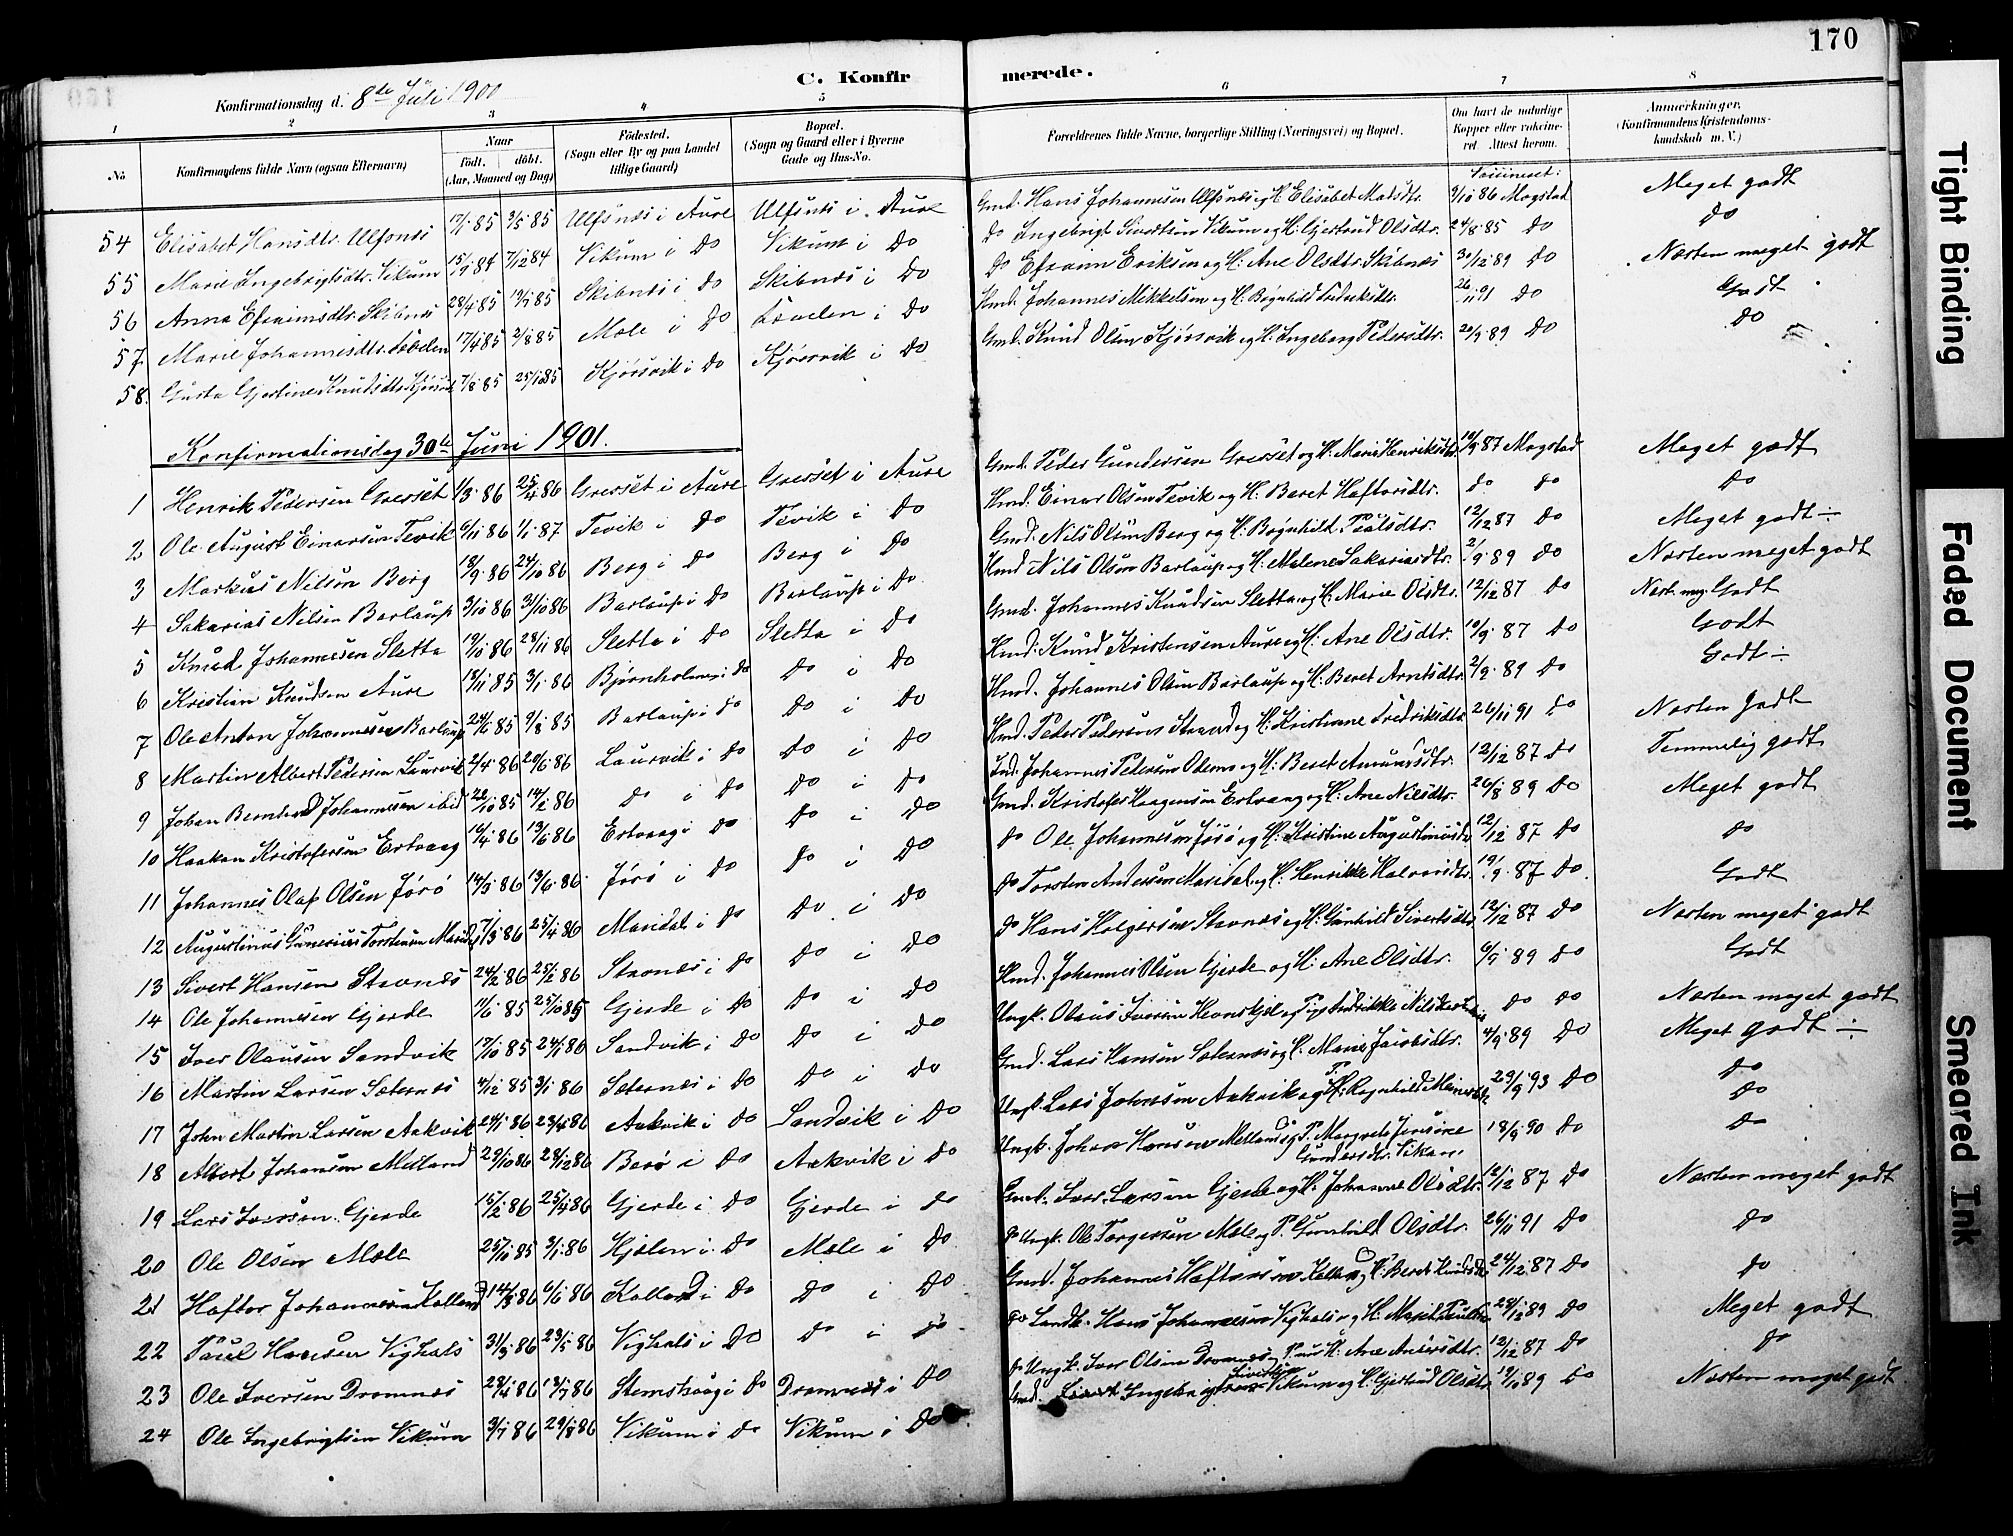 170
C. Konfir merede.
Konfirmationsdag d. 8de Juli 1900
1 2 3 4 5 6 7 8
No. Konfirmandens fulde Navn (ogsaa Efternavn) Naar födt. döbt. (Aar, Maaned og Dag) Födested. (Sogn eller By og paa Landet tillige Gaard) Bopæl. (Sogn og Gaard eller i Byerne Gade og Hus-No. Forældrenes fulde Navne, borgerlige Stilling (Næringsvei) og Bopæl. Om havt de naturlige Kopper eller vakcineret. Attest herom. Anmærkninger, (Konfirmandens Kristendomskundskab m. V.)
54 Elisabet Hansdtr. Ulfsnes 17/1 85 3/5 85 Ulfsnes i Aure Ulfsnes i Aure Gmd. Hans Johannesen Ulfsnes og H. Elisabet Matsdtr. 9/10 86 Mogstad Meget godt
55 Marie Ingebrigtsdtr. Vikum 15/9 84 7/12 84 Vikum i Do Vikum i Do Do Ingebrigt Sivertsen Vikum og H. Gjertrud Olsdtr. 24/8 85 Do Do
56 Anna Efraimsdtr. Skibnes 28/4 85 19/7 85 Skibnes i Do Skibnes i Do Do Efraim Eriksen og H. Ane Olsdtr. Skibnes 30/12 89 Do Næsten meget godt
57 Marie Johannesdtr. 17/4 85 2/8 85 Mele i Do i Do Hmd. Johannes Mikkelsen og H. Bognhild Fredriksdtr. 26/11 91 Do Godt
58. Gusta Gjertine Knudsdtr. Kjörsvik 7/8 85 25/10 85 Kjörsvik i Do Kjörsvik i Do Gmd. Knud Olsen Kjörsvik og H. Ingeborg Pedersdtr. 20/9 89 Do Do
Konfirmationsdag 30te Juni 1901.
1 Henrik Pedersen Gresset 1/3 86 25/4 86 Gresset i Aure Gresset i Aure Gmd. Peder Gundersen Gresset og H. Marie Henriksdtr. 10/9 87 Mogstad Meget godt
2 Ole August Einarsen Tevik 6/11 86 1/1 87 Tevik i Do Tevik i Do Hmd. Einar Olsen Tevik og H. Beret Haftorsdtr. Do Do Do
3 Markus Nilsen Berg 18/9 86 24/10 86 Berg i Do Berg i Do Gmd. Nils Olsen Berg og H. Bognhild Paalsdtr. 12/12 87 Do Meget godt ÷
4 Sakarias Nilsen Barlaup 3/10 86 31/10 86 Barlaup i Do Barlaup i Do Hmd Nils Olsen Barlaup og H. Malene Sakariasdtr. 2/9 89 Do Næsten meget godt
5 Knud Johannesen Sletta 19/10 86 28/11 86 Sletta i Do Sletta i Do Gmd. Johannes Knudsen Sletta og H. Marie Olsdtr. 12/12 87 Do Næst. meg. Godt
6 Kristian Knudsen Aure 18/11 85 3/1 86 Bjørnholmen i Do Do i Do Hmd. Knud Kristensen Aure og H. Ane Olsdtr. 10/9 87 Do Godt
7 Ole Anton Johannesen Barlaup 24/6 85 9/8 85 Barlaup i Do Do i Do Hmd. Johannes Olsen Barlaup og H. Beret Arntsdtr. 2/9 89 Do Godt ÷
8 Martin Albert Pedersen Laurvik 2/4 86 20/6 86 Laurvik i Do Do i Do Hmd. Peder Pedersen Strand og H. Kristiane Fredriksdtr. 26/11 91 Do Næsten Godt
9 Johan Bernhard Johannesen ibid 28/10 85 14/2 86 Do i Do Do i Do Ind. Johannes Pedersen Odeno og H. Beret Amundsdtr. 12/12 87 Do Temmelig godt
10 Haakon Kristofersen Ertvaag 16/4 86 13/6 86 Ertvaag i Do Do i Do Gmd. Kristofer Haagensen Ertvaag og H. Ane Nilsdtr. 26/8 89 Do Meget godt
11 Johannes Olaf Olsen Jörö 14/5 86 13/6 86 Jörö i Do Do i Do Do Ole Johannesen Jörö og H. Kristine Augustinusdtr 12/12 87 Do Do
12 Augustinus Gunerius Torstensen Maridal 7/3 86 25/4 86 Maridal i Do Do i Do Do Torsten Andersen Maridal og H. Henrikke Halvorsdtr. 19/9 87 Do Godt
13 Sivert Hansen Stavnes 24/2 86 25/2 86 Stavnes i Do Do i Do Do Hans Holgersen Stavnes og H. Gunhild Sivertsdtr. 12/12 87 Do Næsten meget godt
14 Ole Johannesen Gjerde 11/6 85 25/10 85 Gjerde i Do Do i Do Hmd. Johannes Olsen Gjerde og H. Ane Olsdtr. 6/9 89 Do Godt
15 Iver Olausen Sandvik 17/10 85 24/1 86 Sandvik i Do Do i Do Ungk. Olaus Iversen Hevnskjel og Pige Andrikke Nilsdtr Do Do Næsten meget godt
16 Martin Larsen Sæternes 4/12 85 3/1 86 Sæternes i Do Do i Do Gmd. Lars Hansen Sæternes og H. Marie Jakobsdtr. 4/9 89 Do Meget godt ÷
17 John Martin Larsen Aakvik 24/1 86 23/4 86 Aakvik i Do Sandvik i Do Ungk. Lars Johnsen Aakvik og P. Ragnhild 29/9 93 Do Do
18 Albert Johansen Melland 29/10 86 28/12 86 Berö i Do Aakvik i Do Ungk. Johan Hansen Melland og P. Margrete Jensine Gundersdtr. Vikan 18/9 90 Do Do
19 Lars Iversen Gjerde 15/2 86 25/4 86 Gjerde i Do Gjerde i Do Gmd. Iver Larsen Gjerde og H. Johanne Olsdtr. 12/12 87 Do Næsten meget godt
20 Ole Olsen Mele 25/10 85 3/1 86 Hjelen i Do Mele i Do Ungk. Ole Torgersen Mele og P. Gunhild Olsdtr. 26/11 91 Do Do
21 Haftor Johannesen Kalland 14/3 86 6/6 86 Kalland i Do Do i Do Gmd. Johannes Haftorsen Kalland og H. Beret Knudsdtr 24/12 87 Do Do
22 Paul Hansen Vighals 31/3 86 23/5 86 Vighals i Do Do i Do Do Landh. Hans Johannesen Vighals og H. Marit Paulsdtr 28/12 89 Do Meget godt
23 Ole Iversen Dromnes 28/4 86 18/7 86 Stemshaug i Do Dromnes i Do Do Ungk. Iver Olsen Dromnes og P. nu H. Ane Andersdtr. 12/12 87 Do Do
24 Ole Ingebrigtsen Vikum 3/7 86 29/8 86 Vikum i Do Vikum i Do Gmd. Ingebrigt Sivertsen Vikum og H. Gjertrud Olsdtr. 19/10 89 Do Næsten meget godt
Tight Binding
Faded Document
Smeared Ink